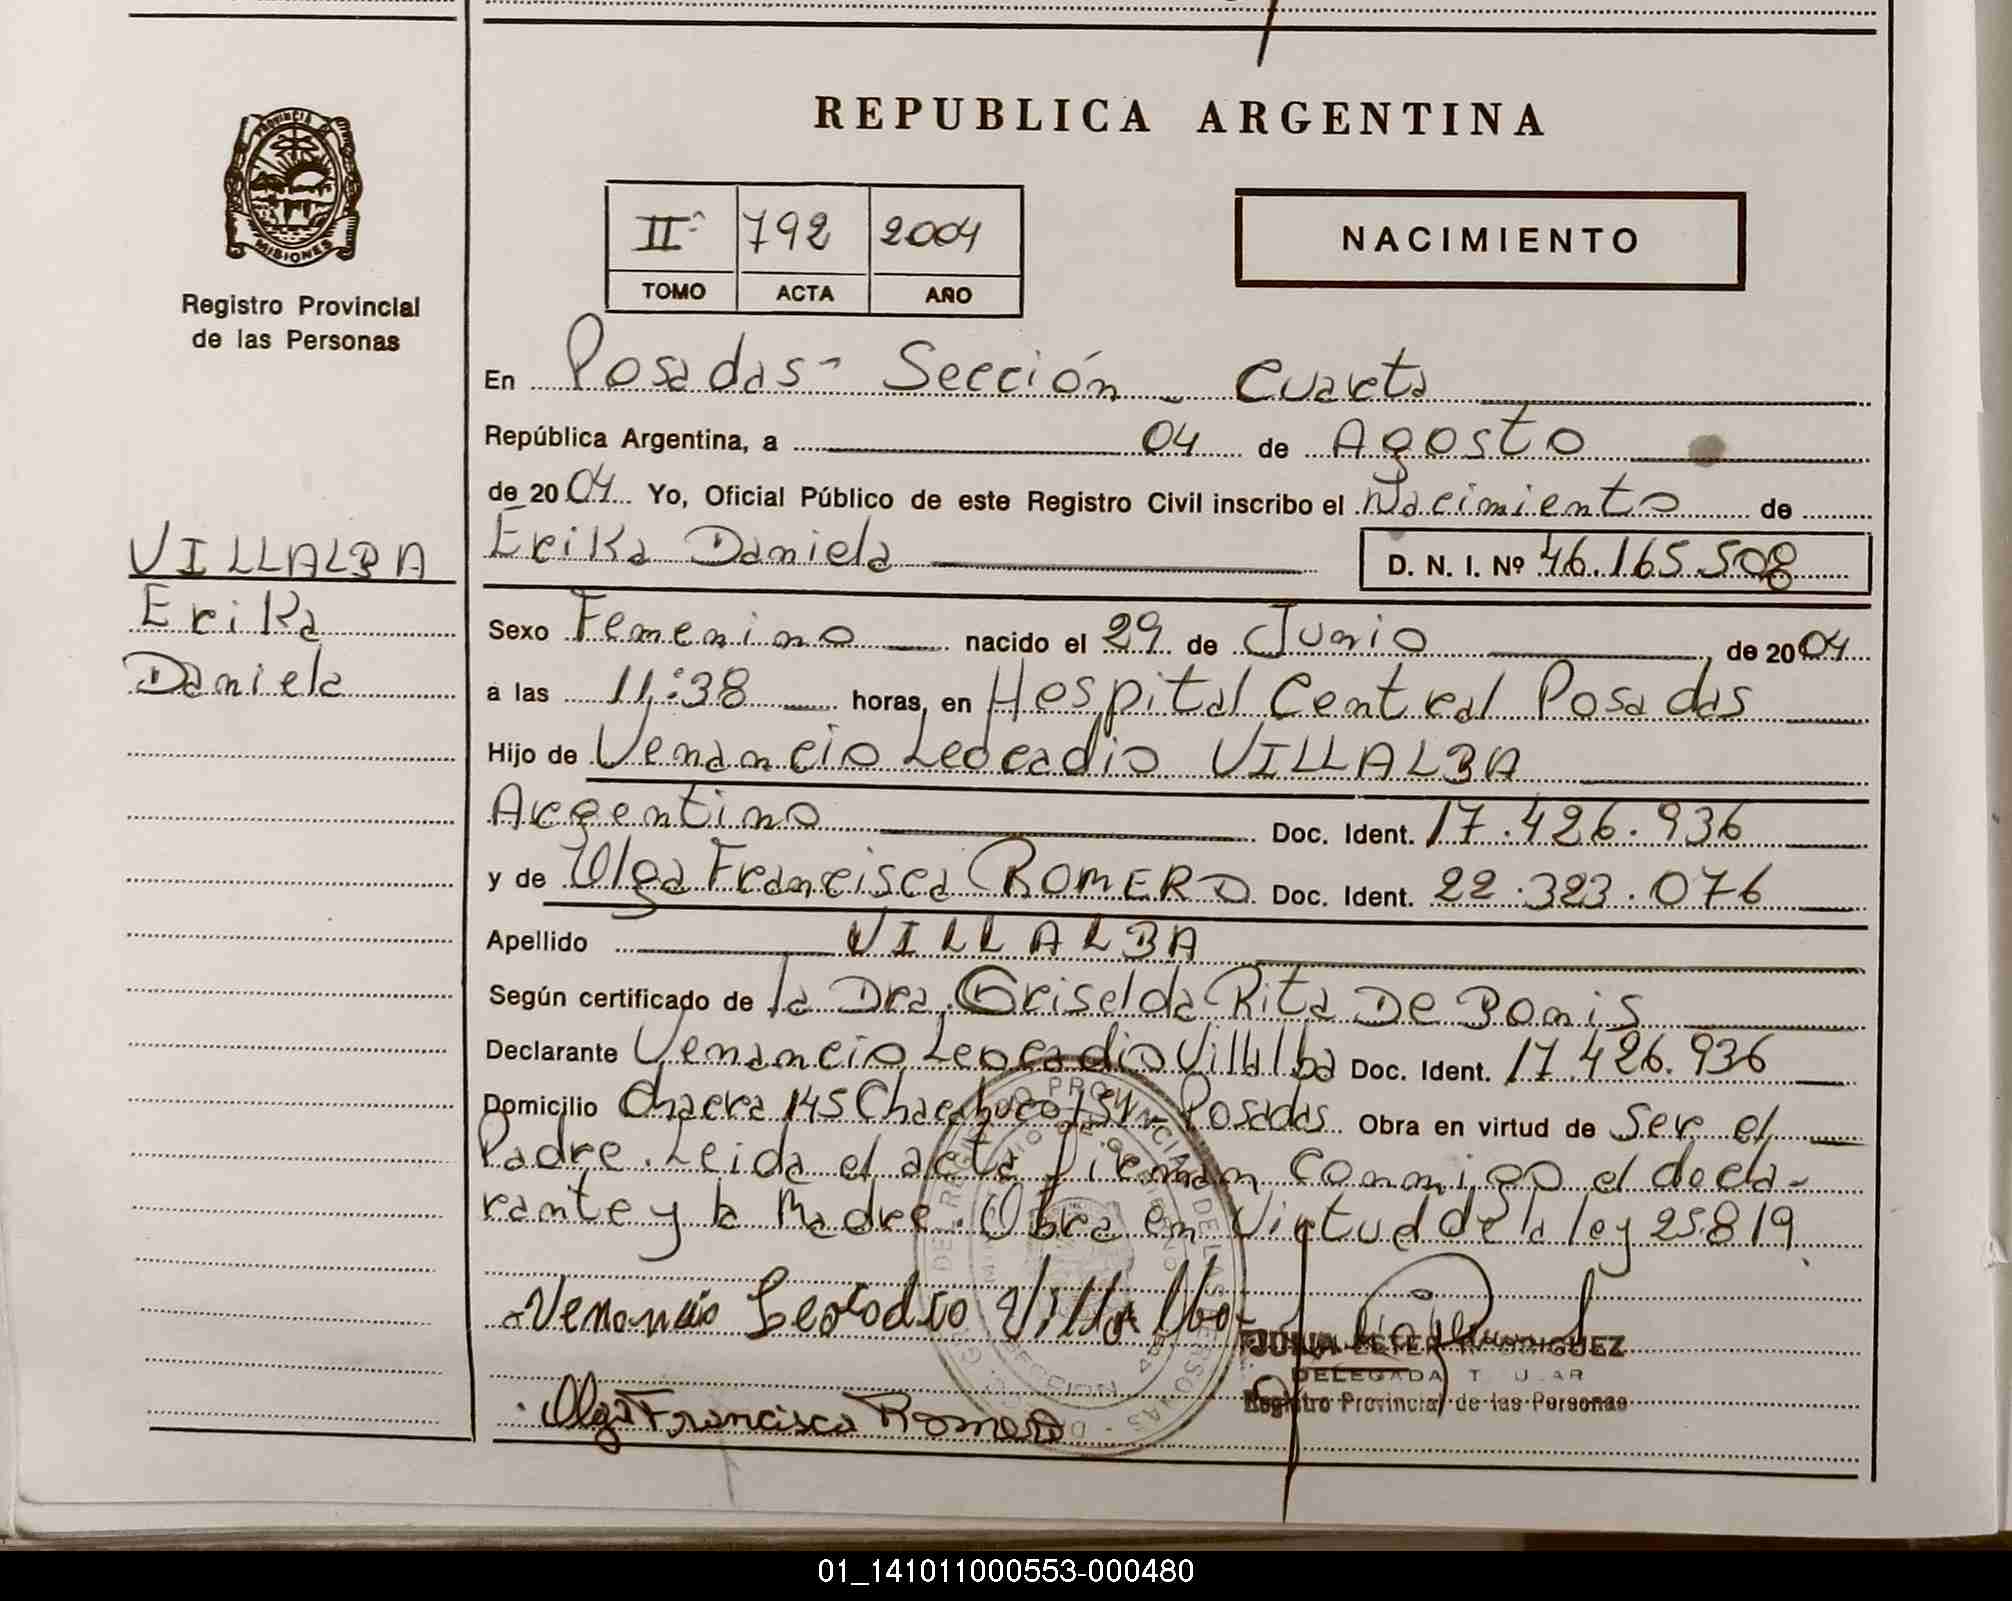 REPUBLICA ARGENTINA
PROVINCIA DE
MISIONES
Registro Provincial
de las Personas
II 792 2004
TOMO ACTA AÑO
NACIMIENTO
En Posadas - Sección Cuarta
República Argentina, a 04 de Agosto
de 2004 Yo, Oficial Público de este Registro Civil inscribo el Nacimiento de
Erika Daniela D. N. I. Nº 46.165.508
VILLALBA
Erika
Daniela
Sexo Femenino nacido el 29 de Junio, de 2004
a las 11:38 horas, en Hospital Central Posadas
Hijo de Venancio Leocadio VILLALBA
Argentino Doc. Ident. 17.426.936
y de Olga Francisca ROMERO Doc. Ident. 22.323.076
Apellido VILLALBA
Según certificado de la Dra. Griselda Rita De Bonis
Declarante Venancio Leocadio Villalba Doc. Ident. 17.426.936
Domicilio Chacra 145 Chacabuco Posadas Obra en virtud de Ser el
Padre. Leida el acta firman conmigo el decla-
rante y la Madre. Obra en Virtud de la ley 25.819.
Venancio Leocadio Villalba
JULIA ESTER RODRIGUEZ
DELEGADA TITULAR
Registro Provincial de las Personas
Olga Francisca Romero
01_141011000553-000480